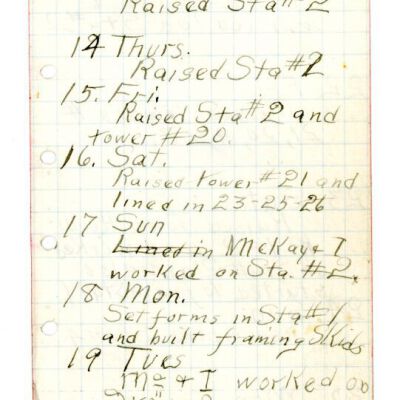 Raised Sta # 2
14 Thurs.
Raised Sta #2
15. Fri.
Raised Sta # 2 and
tower # 20.
16. Sat.
Raised tower # 21 and
lined in 23-25-26
17 Sun
Lined in McKay & I
worked on Sta. # 2.
18 Mon.
Set forms in Sta # 1
and built framing skids
19 Tues
Mc & I worked on